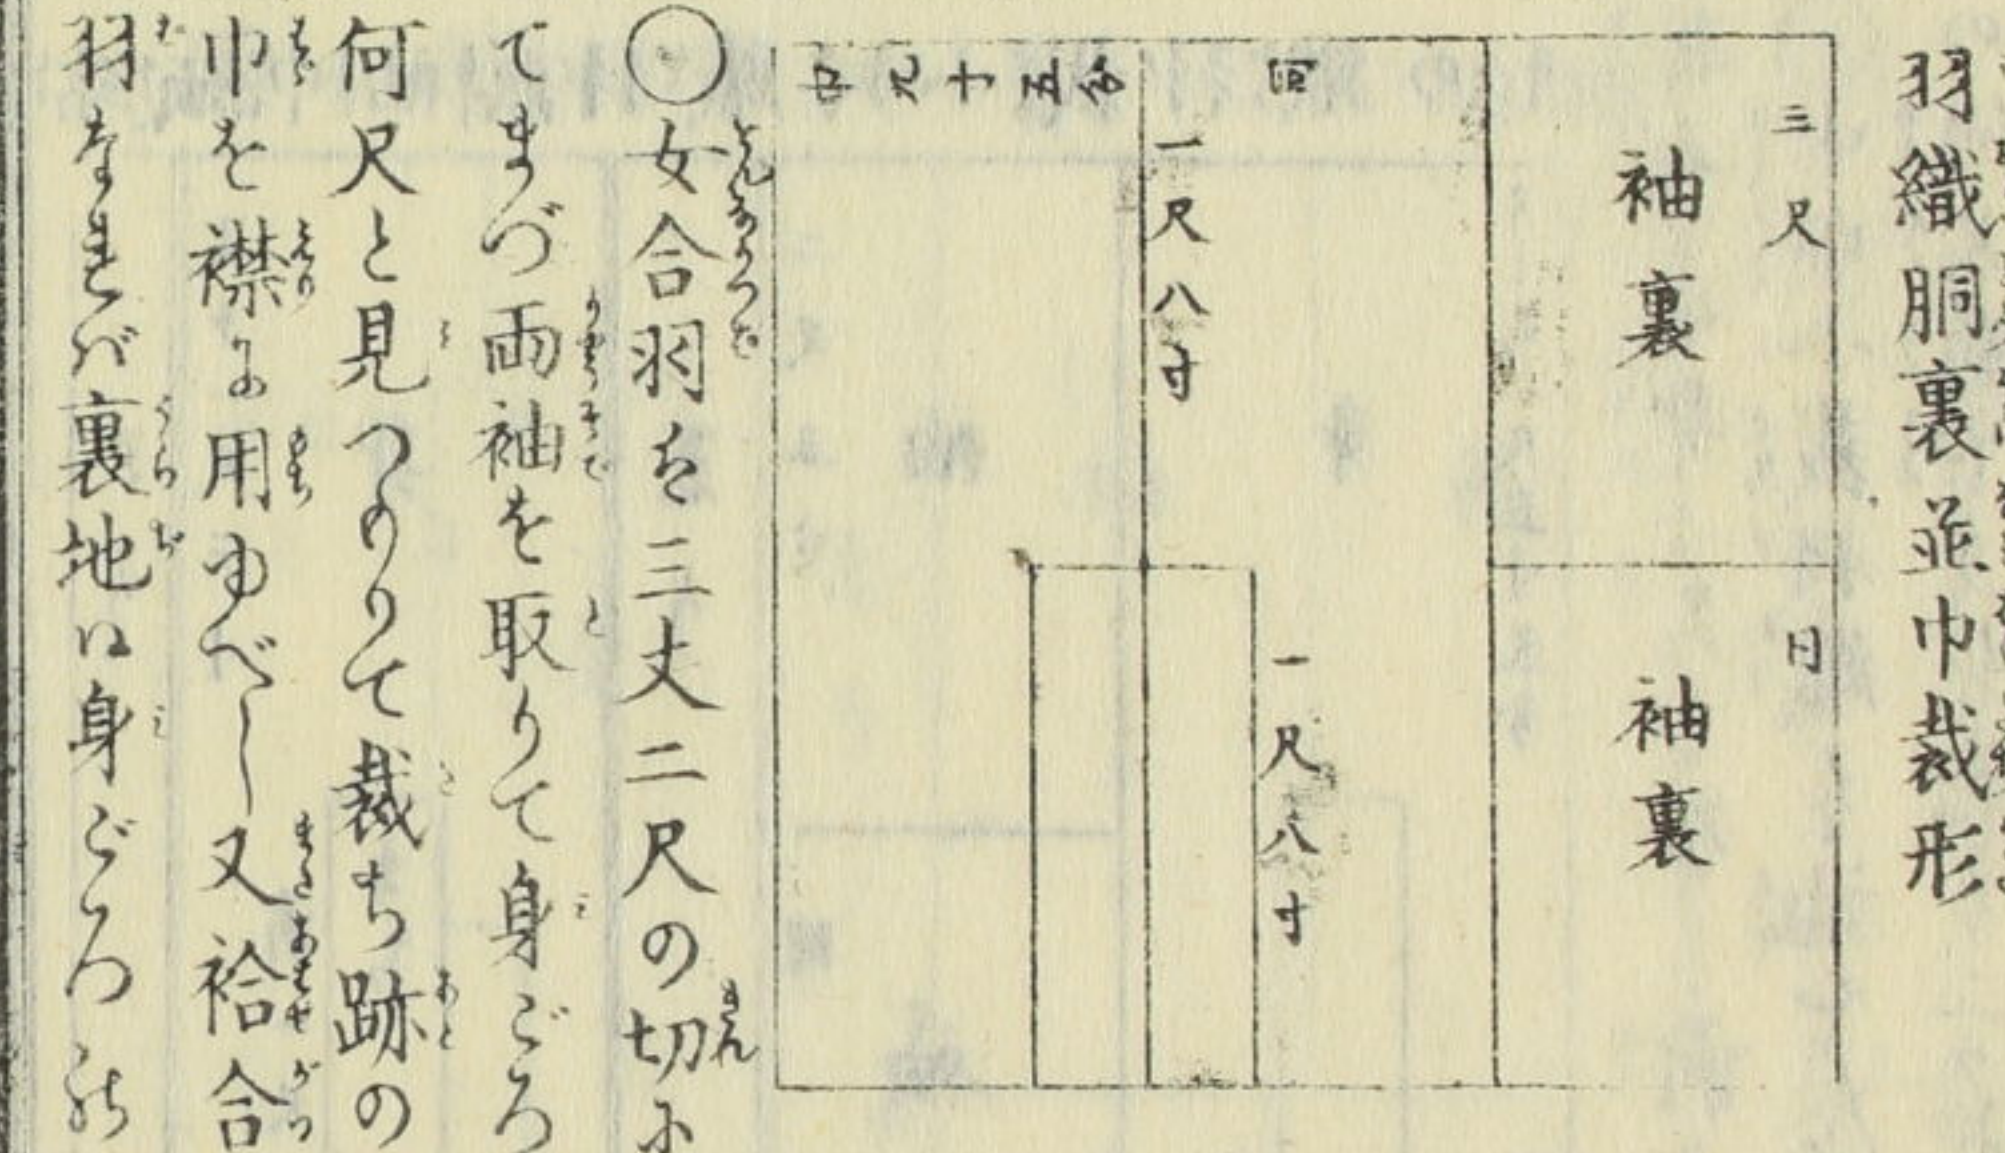 羽織胴裏並巾裁形
三尺
袖裏
袖裏
一尺八寸
一尺八寸
巾九寸五分
○女合羽は三丈二尺の切に
てまづ両袖を取りて身ごろ
何尺と見つもりて裁ち跡の
巾を襟に用ゆべし又袷合
羽なれば裏地は身ごろの